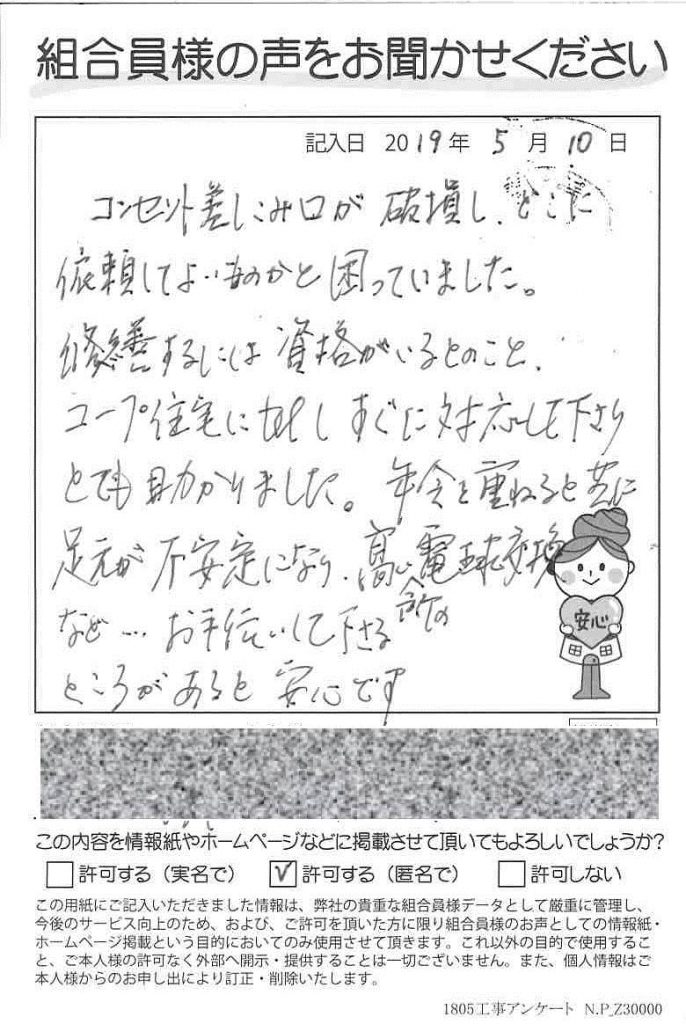 組合員様の声をお聞かせください
記入日 2019年 5月 10日
コンセント差しこみ口が 破損し、どこに
依頼してよいものかと困っていました。
修繕するには資格がいるとのこと、
コープ住宅にtelしすぐに対応して下さり
とても助かりました。年令と重ねると共に
足元が不安定になり、高い電球交換
など… お手伝いして下さる
ところがあると安心です
安心
この内容を情報紙やホームページなどに掲載させて頂いてもよろしいでしょうか?
許可する(実名で) ✓許可する(匿名で) 許可しない
この用紙にご記入いただきました情報は、弊社の貴重な組合員様データとして厳重に管理し、
今後のサービス向上のため、および、ご許可を頂いた方に限り組合員様のお声としての情報紙・
ホームページ掲載という目的においてのみ使用させて頂きます。これ以外の目的で使用するこ
と、ご本人様の許可なく外部へ開示・提供することは一切ございません。また、個人情報はご
本人様からのお申し出により訂正・削除いたします。
1805工事アンケート N.P_Z30000